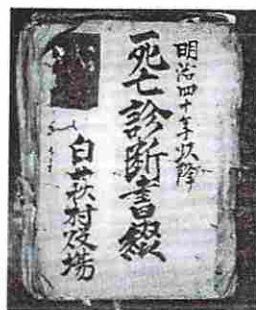 明治四十年以降
死亡診断書綴
白萩村役場